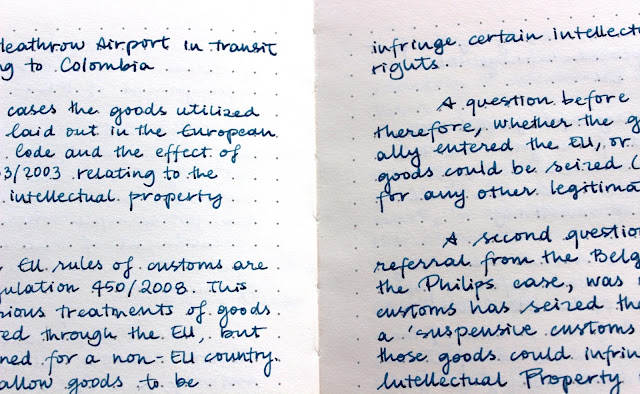 Heathrow Airport in transit
ng to Colombia
cases the goods utilized
laid out in the European
Code and the effect of
3/2003 relating to the
intellectual property
EU rules of customs are
gulation 450/2008. This
ious treatments of goods
ed through the EU, but
ned for a non-EU country.
allow goods to be
infringe certain intellectu
rights.
A question before
therefore, whether the g
ally entered the EU, or
goods could be seized
for any other legitima
A second question
referral from the Belg
the Philips case, was
customs has seized the
a 'suspensive customs
those goods could infrin
Intellectual Property